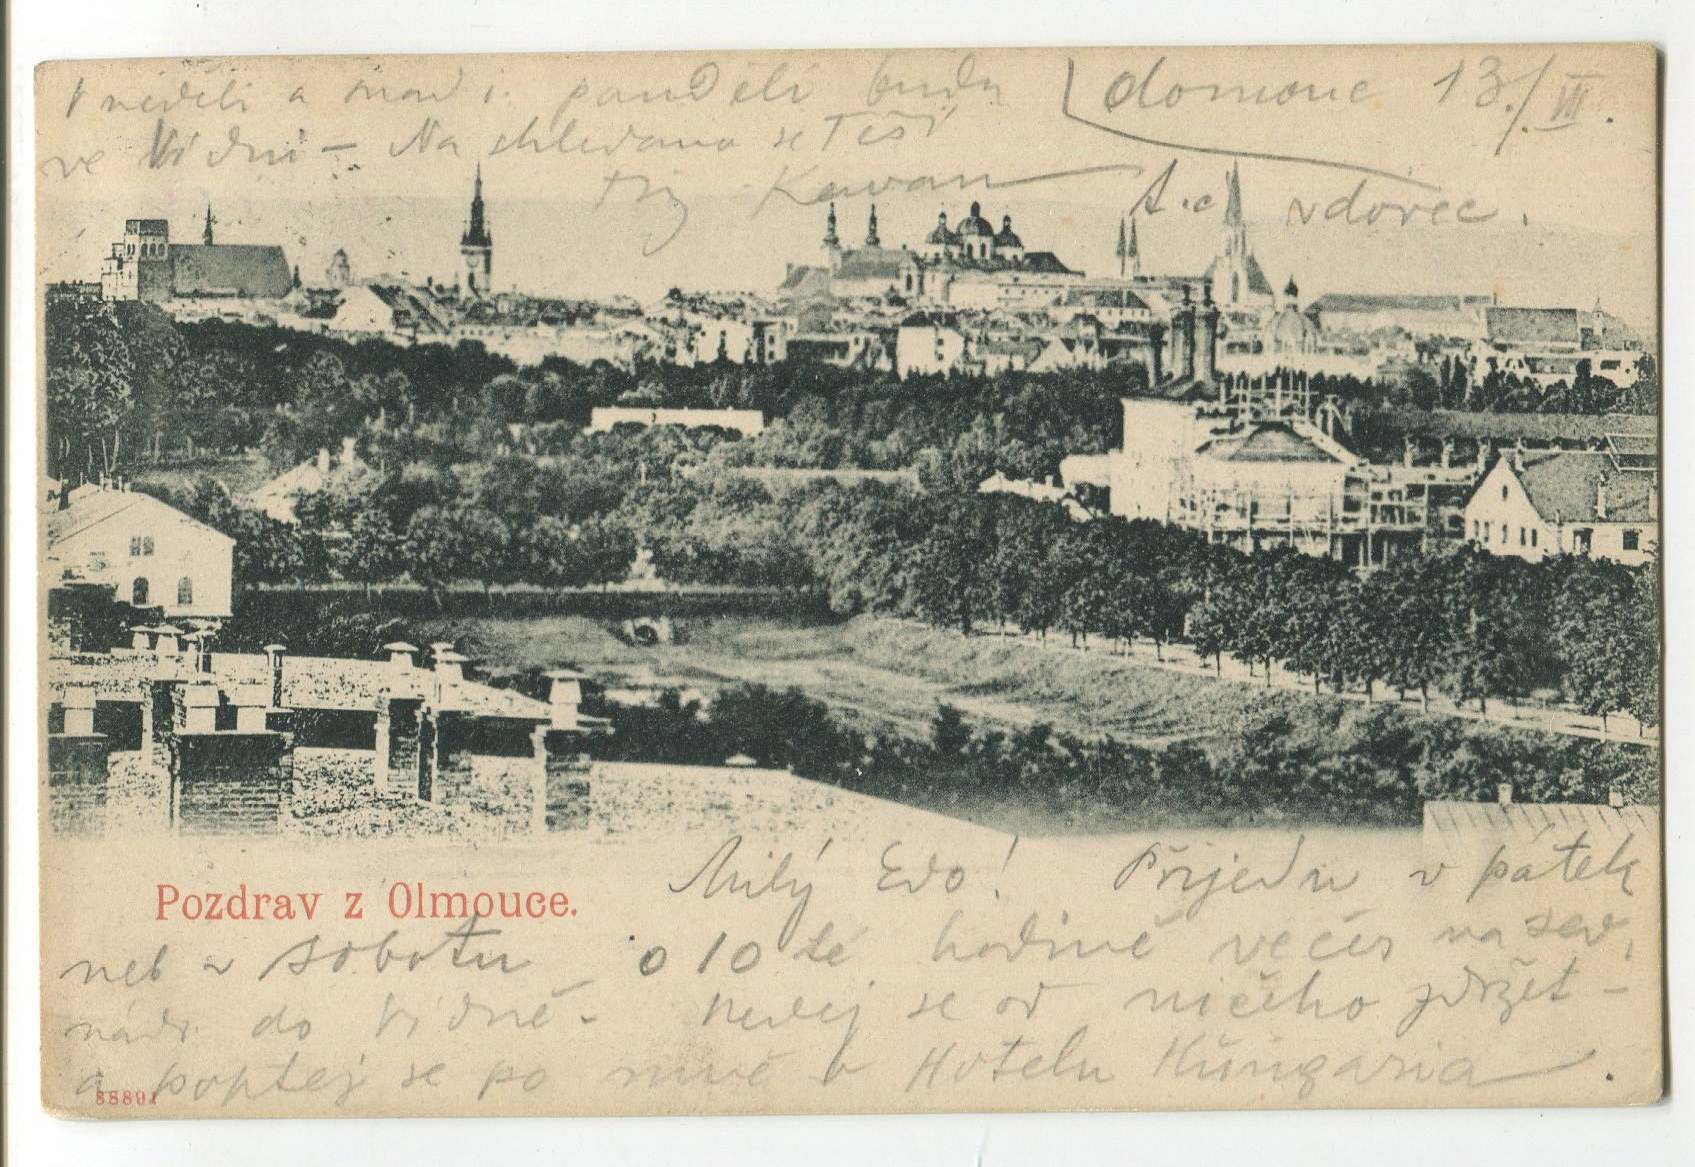 V neděli a snad i pondělí budu
ve Vídni – Na shledanou se Těší
Kavan
Olomouc 13./VII.
t.č. vdovec.
Pozdrav z Olmouce.
Milý Edo! Přijedu v pátek
neb v sobotu o 10té hodině večer na sev.
nádr. do Vídně – Nedej se od ničeho zdržet –
a poptej se po mně v Hotelu Hungaria.
88891